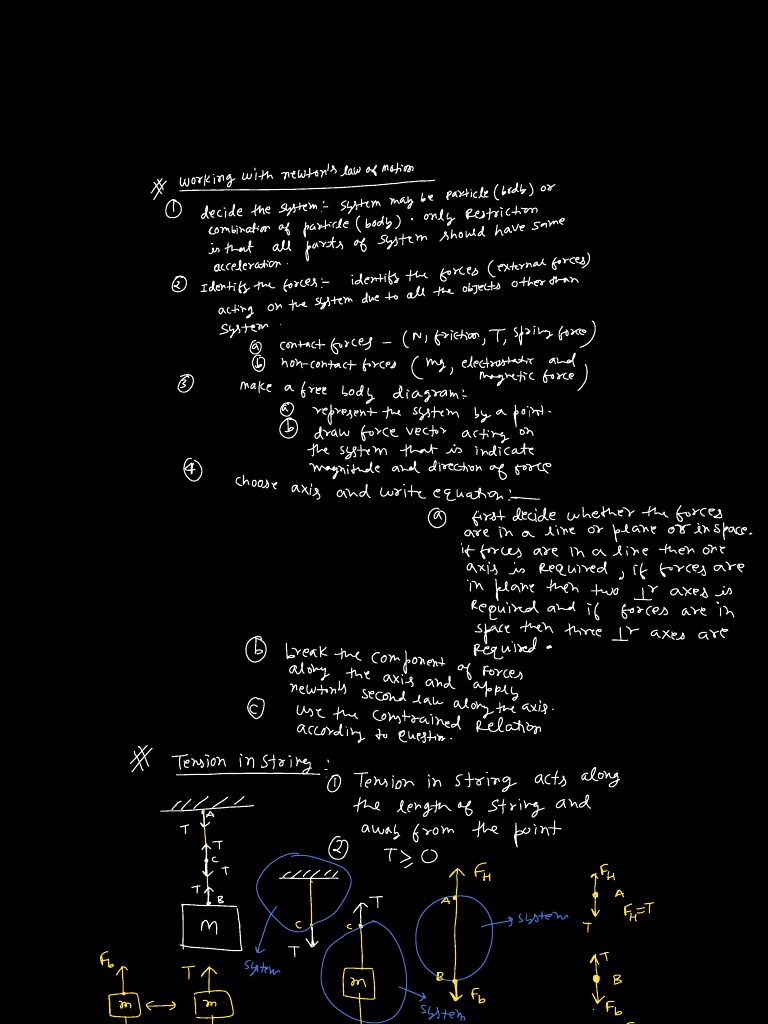 ※ working with newton's law of motion
① decide the system:- system may be particle (body) or
combination of particle (body). only Restriction
is that all parts of system should have same
acceleration.
② Identify the forces:- identify the forces (external forces)
acting on the system due to all the objects other than
system.
ⓐ contact forces - (N, friction, T, spring force)
ⓑ non-contact forces (mg, electrostatic and
magnetic force)
③ make a free body diagram:-
ⓐ represent the system by a point.
ⓑ draw force vector acting on
the system that is indicate
magnitude and direction of force
④ choose axis and write equation:-
ⓐ first decide whether the forces
are in a line or plane or in space.
if forces are in a line then one
axis is Required, if forces are
in plane then two ⊥r axes is
Required and if forces are in
space then three ⊥r axes are
Required.
ⓑ break the component of Forces
along the axis and apply
newton's second law along the axis.
ⓒ use the constrained Relation
according to question.
※ Tension in String:
① Tension in string acts along
the length of string and
away from the point
② T ≥ 0
A
T
T
C
T
T
B
m
C
T
system
T
C
m
system
F_H
A
system
B
F_b
F_H
A
T
F_H=T
T
B
F_b
F_b
m
T
m